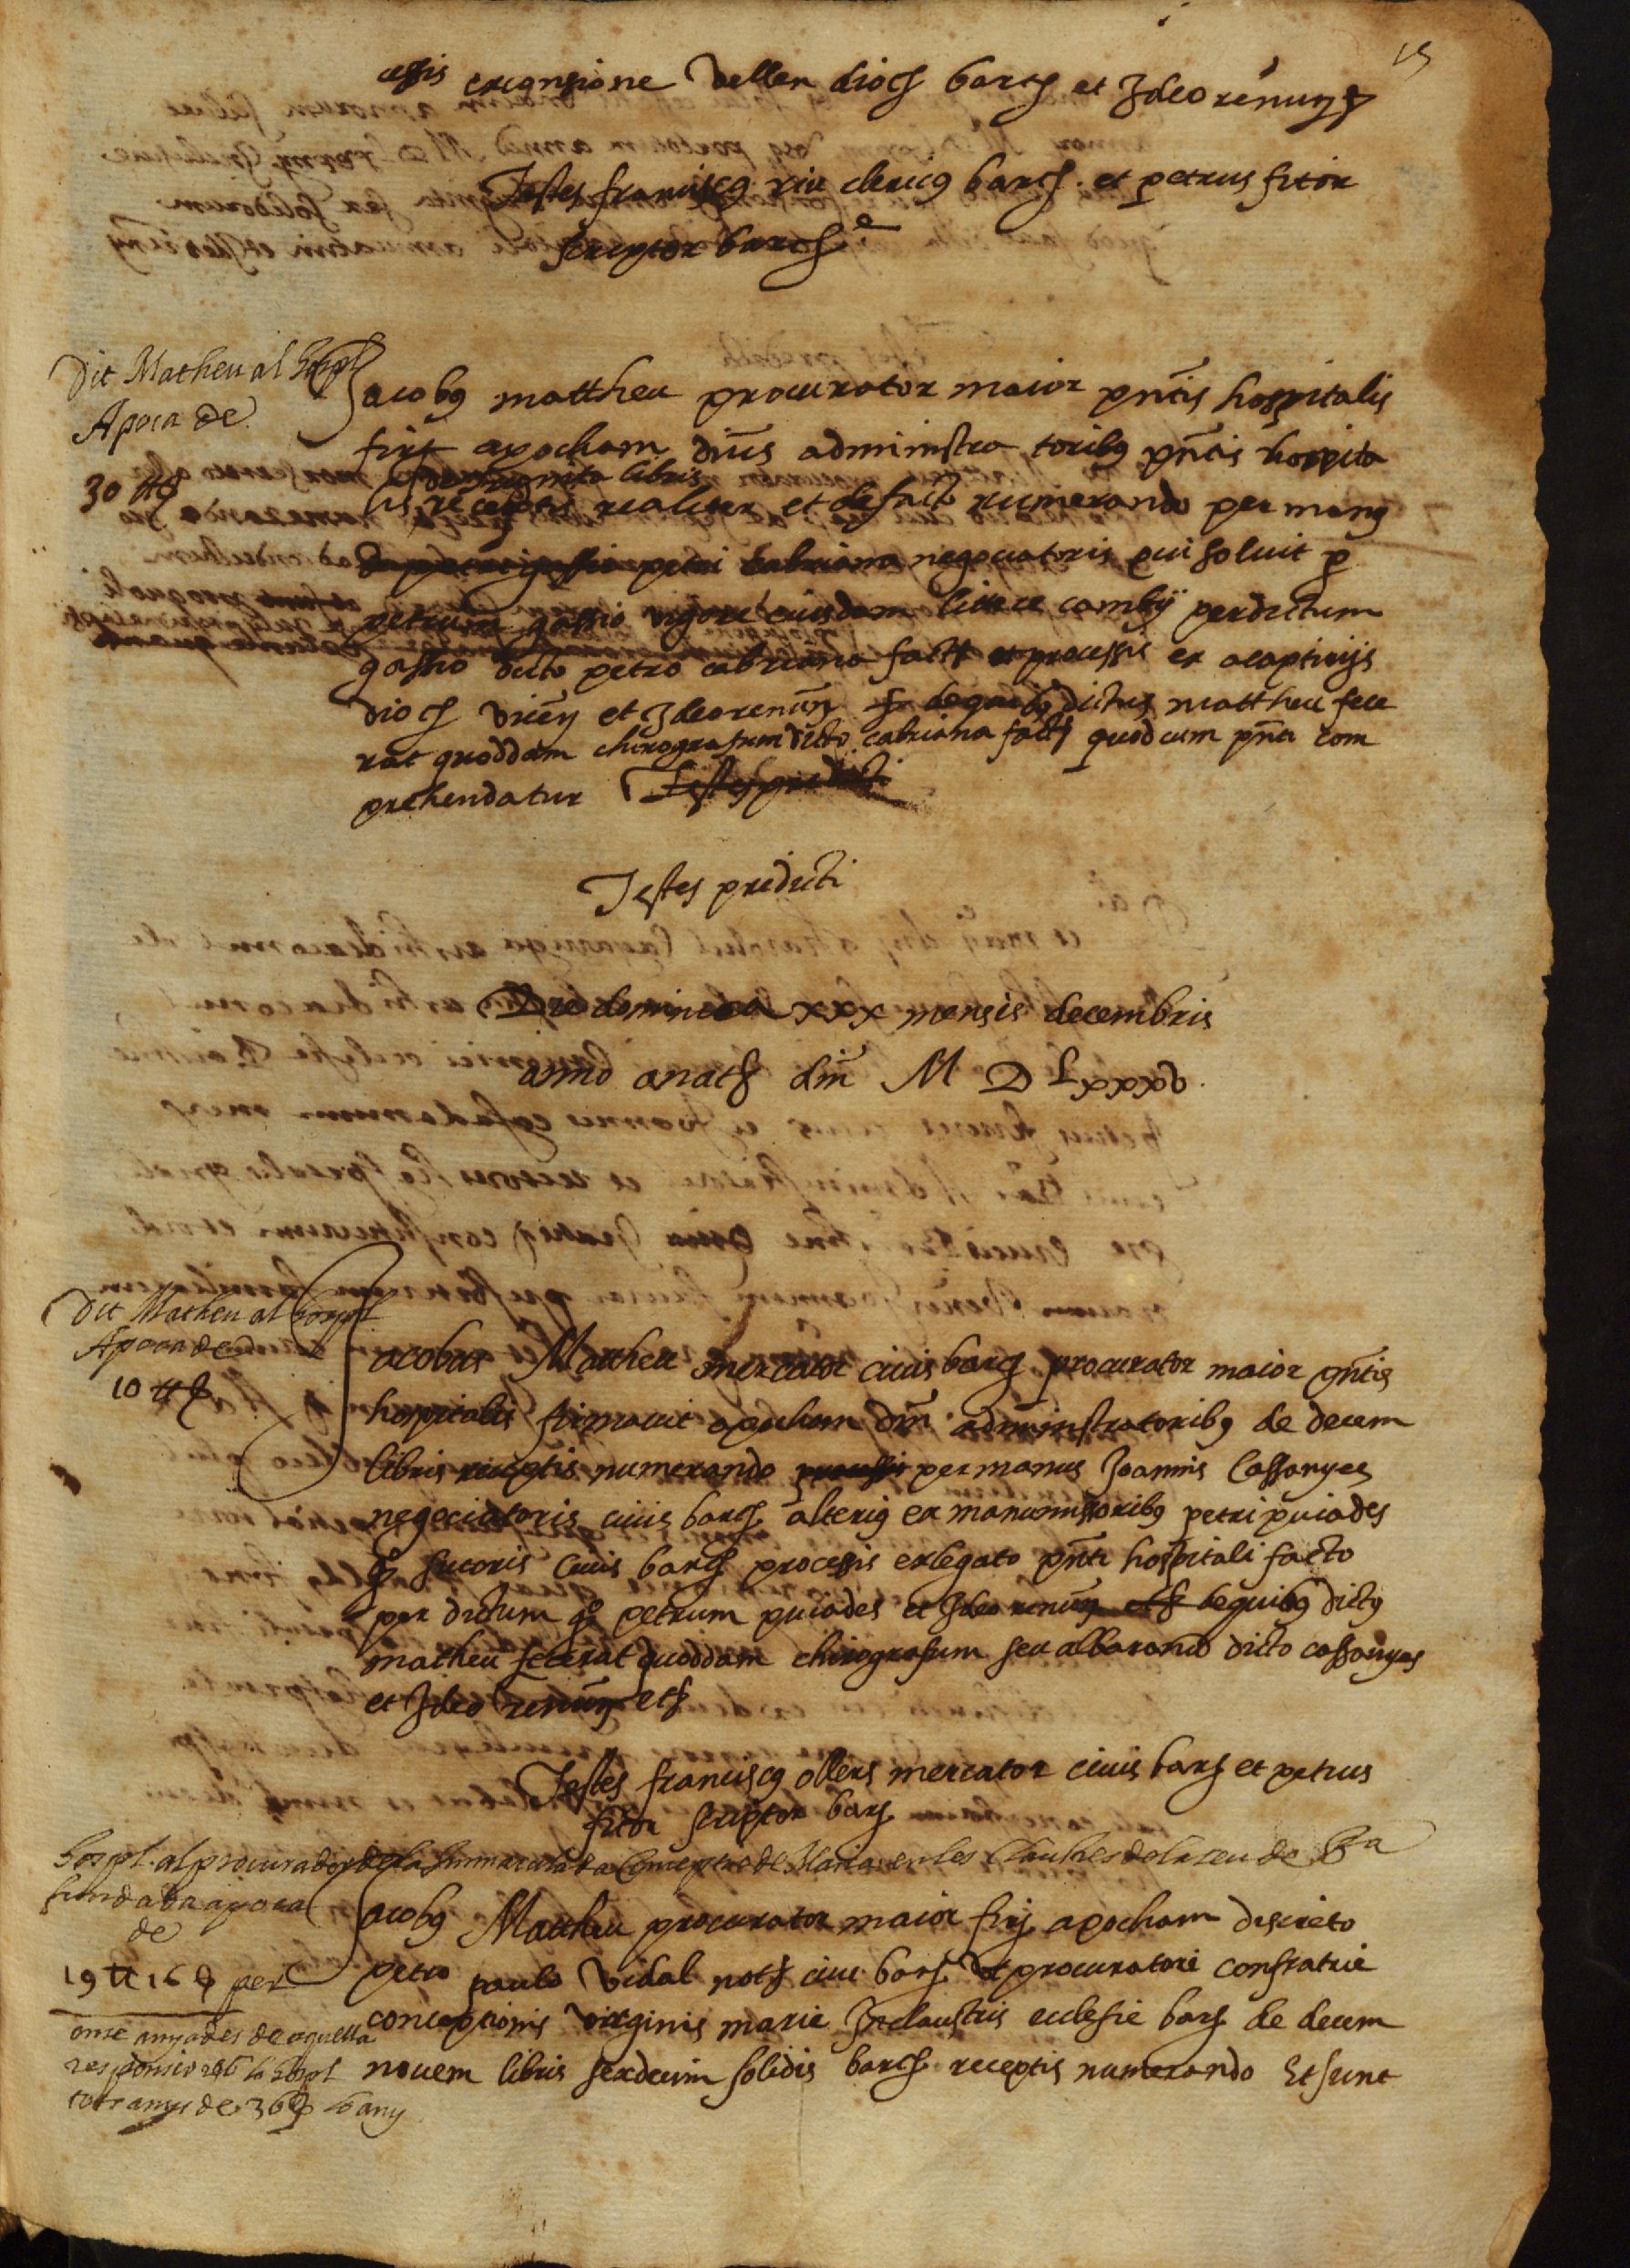 15
essis excansione Vallen dioc̃ barc̃ et Ideo renun̄ ꝛ
Testes franciscꝯ riu clericꝯ barc̃ et petrus fitor
scriptor barc̃e
Dit Matheu al hospl
Apoca de
30 ₶
Jacobꝯ mattheu procurator maior pn̄tis hospitalis
firt apocham dn̄is administratoribꝯ pn̄tis hospita
de triginta libris
lis receptis realiter et de facto numerando per manꝯ
petri cabriana negociatoris qui soluit p
petrum gassio vigore cuiusdam littere cambij per dictum
gassio dicto petro cabriana facte et processis ex acaptiuijs
dioc̃ vicen̄ et Ideo renun̄ de quibꝯ dictus mattheu fece
rat quoddam chirografum dicto cabriana fact quod cum pn̄ti com
prehendatur Testes predicti
Testes predicti
Die dominica xxx mensis decembris
anno a natẽ dn̄i M D Lxxxv.
Dit Matheu al hospl
Apoca de
10 ₶
Jacobus Mattheu mercator ciuis barc̃ procurator maior pn̄tis
hospitalis firmauit apocham dn̄is administratoribꝯ de decem
libris receptis numerando per manus Joannis Cassanyes
negociatoris ciuis barc̃ alteriꝯ ex manumissoribꝯ petri puiades
qͦ sutoris ciuis barc̃ processis ex legato pn̄ti hospitali facto
per dictum qͦ petrum puiades et Ideo renun̄ de quibꝯ dictꝯ
matheu fecerat quoddam chirografum seu albaranũ dicto cassanyes
et Ideo renun̄ etc̃
Testes franciscꝯ ollers mercator ciuis barc̃ et petrus
fitor scriptor barc̃
hospl. al procurador de la Immaculada Conceptio de Maria en les Claustres de la seu de Bna
fundada apoca
de
19 ₶ 16 ß per
onse anyades de aquella
responsio reb lo hospl
tots anys de 36 ß lo any
Jacobꝯ Mattheu procurator maior firt apocham discreto
petro paulo Vidal notͦ ciui barc̃ vt procuratori confratrie
conceptionis virginis marie In claustris ecclesie barc̃ de decem
nouem libris sexdecim solidis barc̃ receptis numerando Et sunt